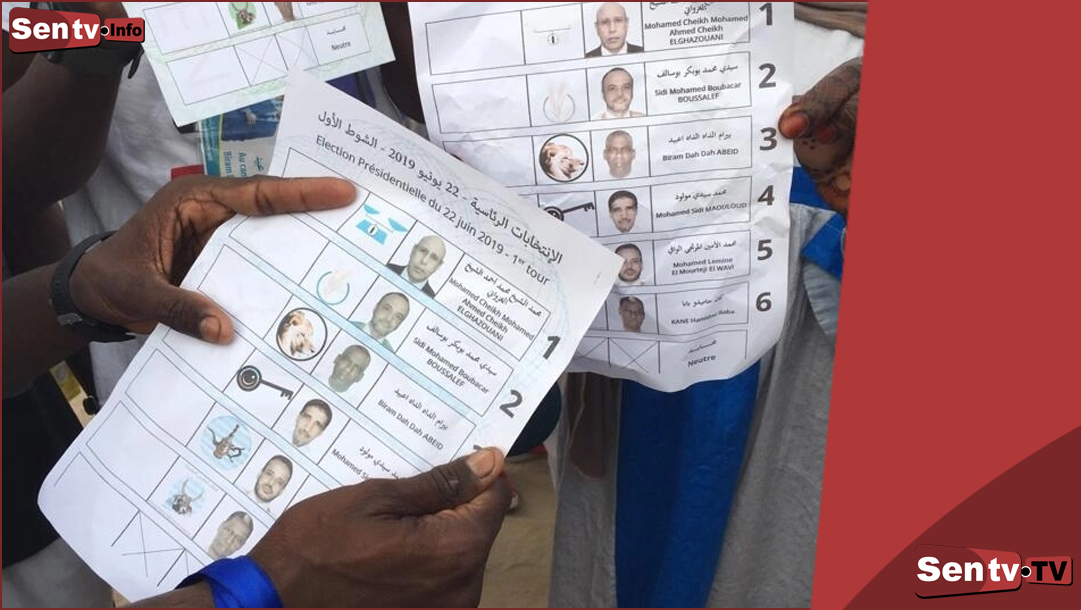 Sen tv Info
قـــايـــد
Neutre
الإنتخابات الرئاسية - 22 يونيو 2019 - الشوط الأول
Election Présidentielle du 22 juin 2019 - 1er tour
محمد الشيخ محمد احمد الشيخ
الغزواني
Mohamed Cheikh Mohamed
Ahmed Cheikh
ELGHAZOUANI
1
سيدي محمد بوبكر بوسالف
Sidi Mohamed Boubacar
BOUSSALEF
2
بيرام الداه الداه اعبيد
Biram Dah Dah ABEID
محمد سيدي مولود
Mohamed
الغزواني
Mohamed Cheikh Mohamed
Ahmed Cheikh
ELGHAZOUANI
1
سيدي محمد بوبكر بوسالف
Sidi Mohamed Boubacar
BOUSSALEF
2
بيرام الداه الداه اعبيد
Biram Dah Dah ABEID
3
محمد سيدي مولود
Mohamed Sidi MAOULOUD
4
محمد الأمين المرتجي الوافي
Mohamed Lemine
El Mourteji El WAVI
5
كان حاميدو بابا
KANE Hamidou Baba
6
Neutre
Sen tv TV